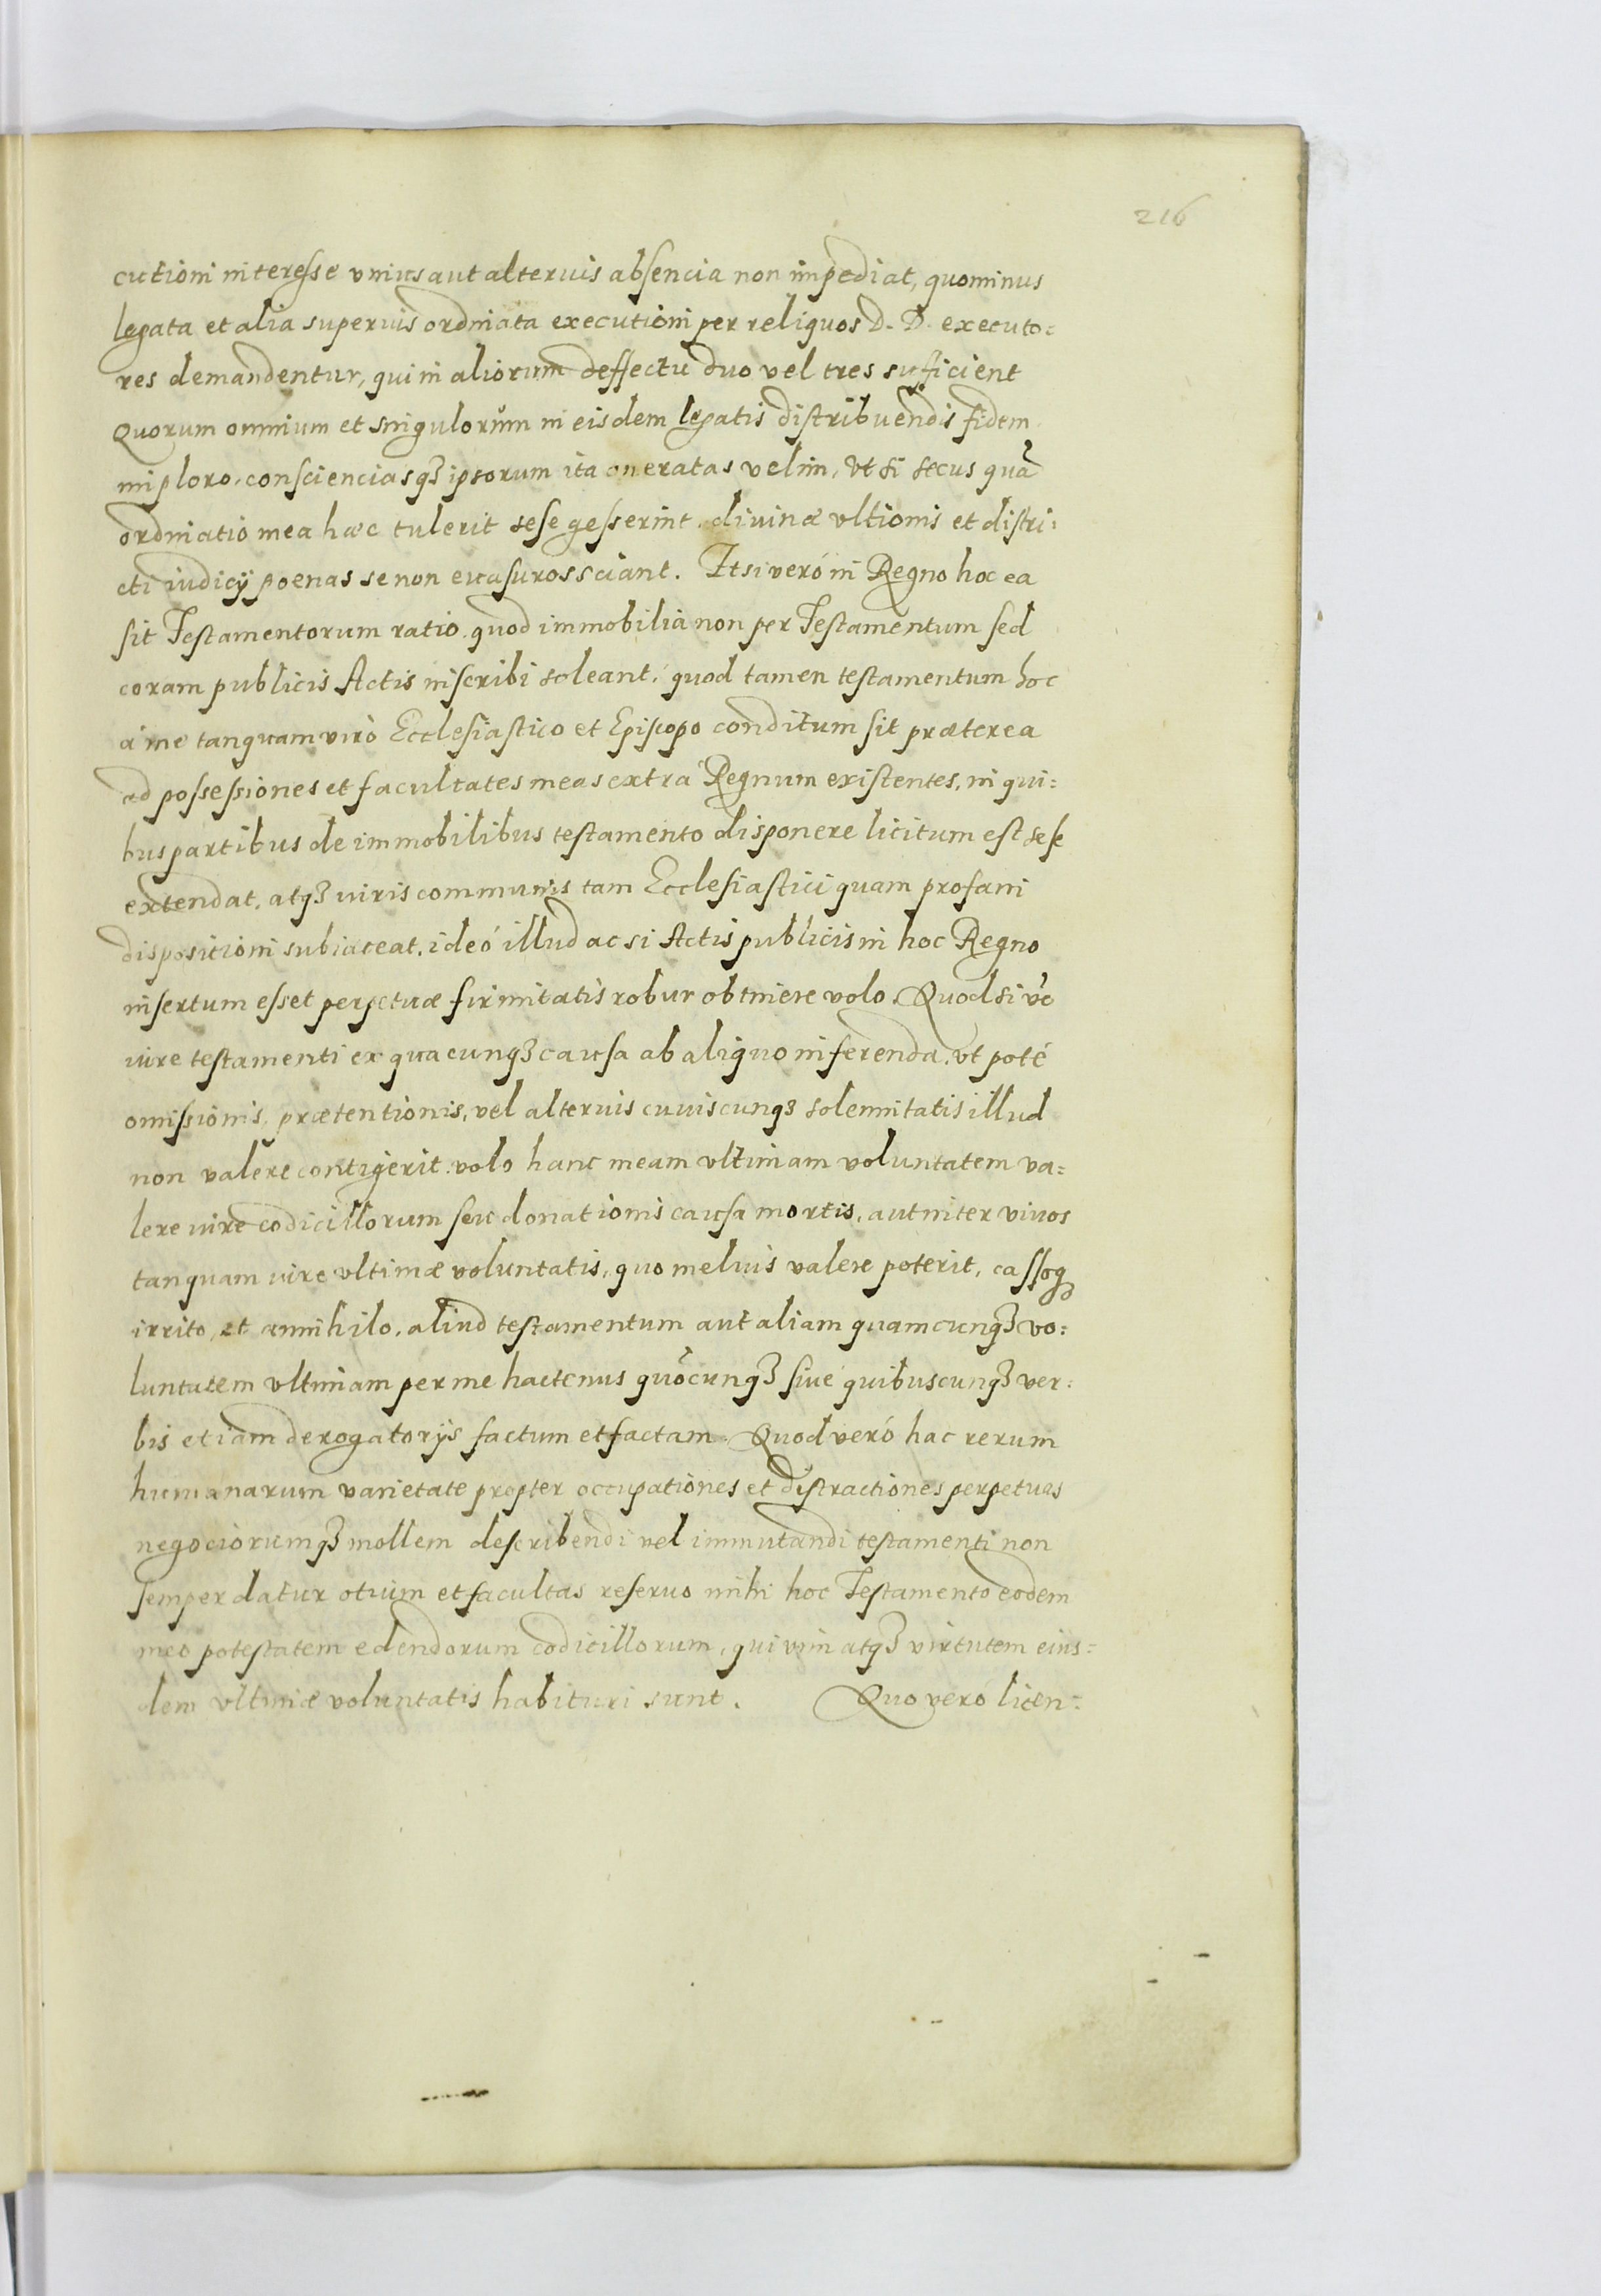 216
cutioni interesse vnius aut alterius absencia non impediat, quominus
legata et alia superius ordinata executioni per reliquos D. D. executo=
res demandentur, qui in aliorum deffectu duo vel tres sufficient
Quorum omnium et singulorum in eisdem legatis distribuendis fidem
imploro, consciencias qꝫ ipsorum ita oneratas velim, Vt si secus quã
ordinatio mea hæc tulerit sese gesserint. diuinæ vltionis et distri=
cti iudicij poenas se non euasuros sciant. Etsi veró in Regno hoc ea
sit Testamentorum ratio, quod immobilia non per Testamentum sed
coram publicis Actis inscribi soleant, quod tamen testamentum hoc
á me tanquam virò Ecclesiastico et Episcopo conditum sit præterea
ad possessiones et facultates meas extra Regnum existentes, in qui=
bus partibus de immobilibus testamento disponere licitum est sese
extendat, atqꝫ iuris communis tam Ecclesiastici quam profani
dispositioni subiaceat, ideó illud ac si Actis publicis in hoc Regno
insertum esset perpetuæ firmitatis robur obtinere volo. Quod si vº
iure testamenti ex quacunqꝫ causa ab aliquo inferenda, vt poté
omissionis, prætentionis, vel alterius cuiuscunqꝫ solennitatis illud
non valere contigerit. volo hanc meam vltimam voluntatem va=
lere iure codicillorum seu donationis causa mortis, aut inter viuos
tanquam iure vltimæ voluntatis, quo melius valere poterit, cassoqꝫ
irrito, et annihilo, aliud testamentum aut aliam quamcunqꝫ vo=
luntatem vltimam per me hactenus quõcunqꝫ siue quibuscunqꝫ ver=
bis etiam derogatorijs factum et factam. Quod veró hac rerum
humanarum varietate propter occupationes et distractiones perpetuas
negociorumqꝫ mollem describendi vel immutandi testamenti non
semper datur otium et facultas reseruo mihi hoc Testamento eodem
meo potestatem edendorum codicillorum, qui vim atqꝫ virtutem eius=
dem vltimæ voluntatis habituri sunt. Quo veró licen=